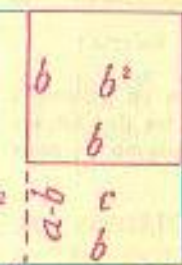 b b²
b
a-b c
b